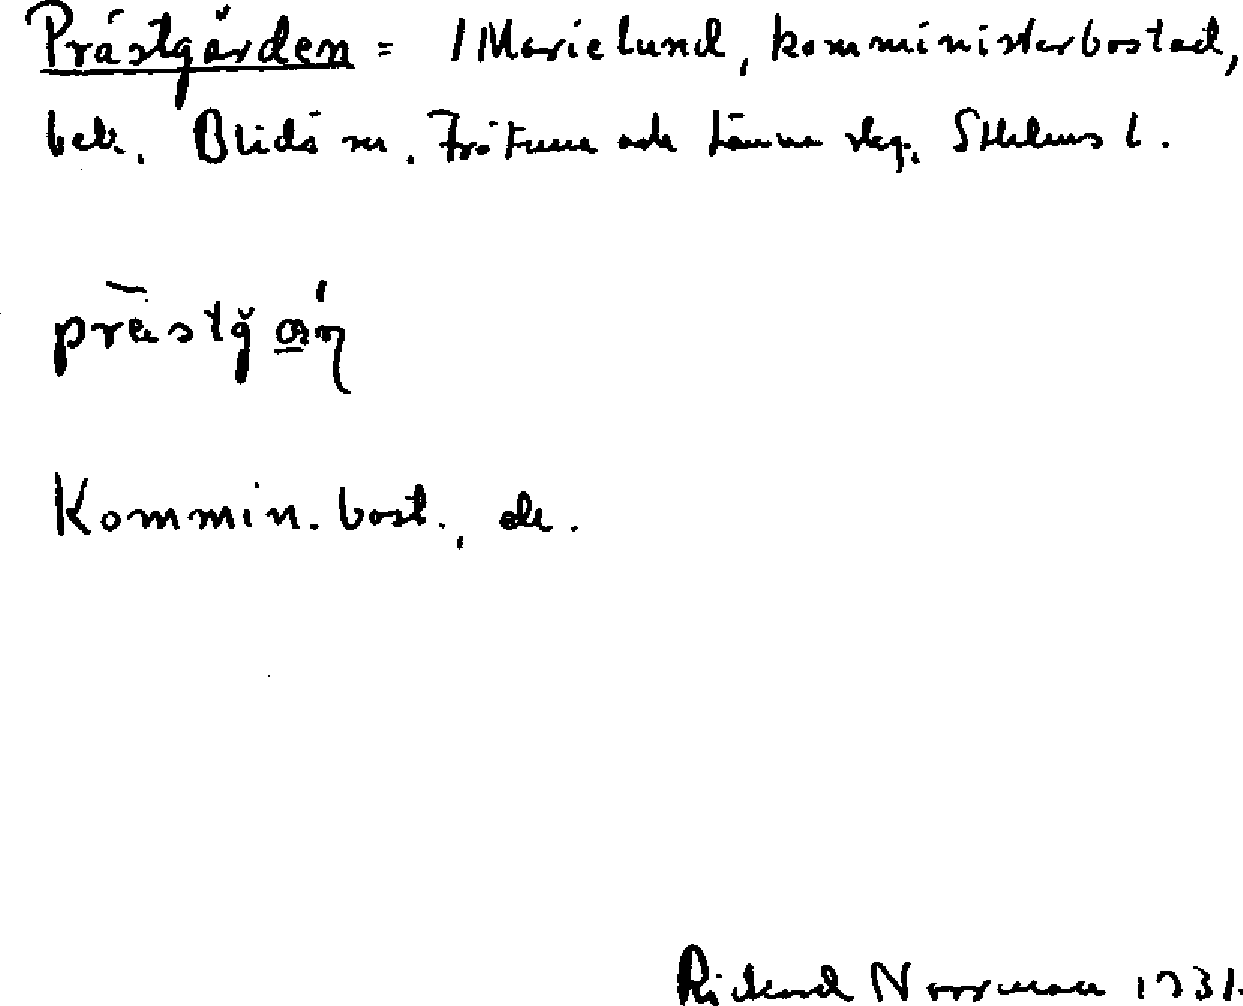 Prästgården = / Marielund, komministerbostad,
beb. Blidö sn. Frötuna och Länna skg. Sthlms l.
prästǧ an̥
Kommin. bost., de.
Rickard Norrman 1931.